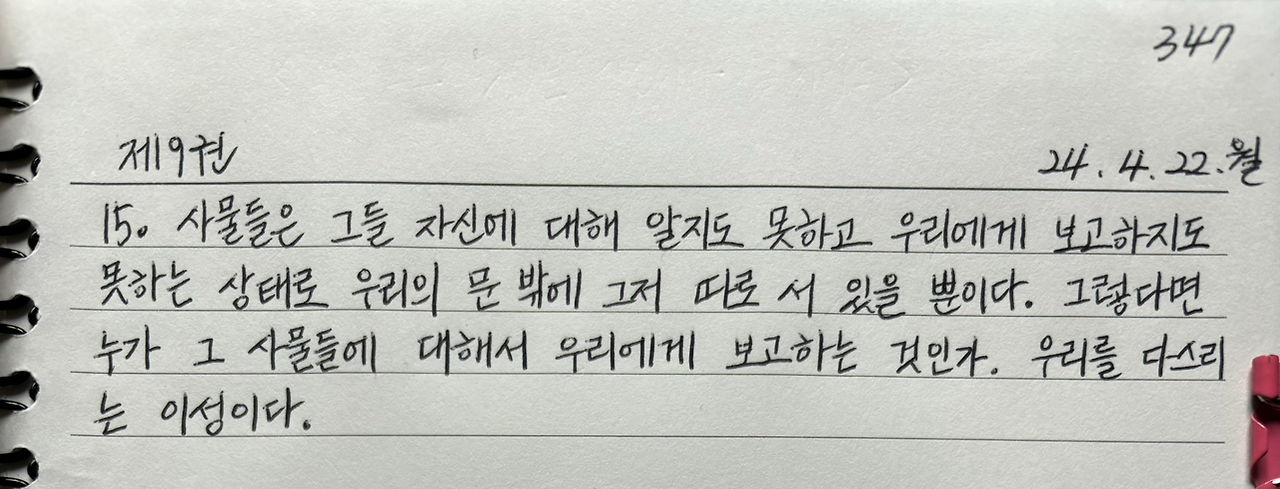 347
제9권 24. 4. 22. 월
15. 사물들은 그들 자신에 대해 알지도 못하고 우리에게 보고하지도
못하는 상태로 우리의 문 밖에 그저 따로 서 있을 뿐이다. 그렇다면
누가 그 사물들에 대해서 우리에게 보고하는 것인가. 우리를 다스리
는 이성이다.